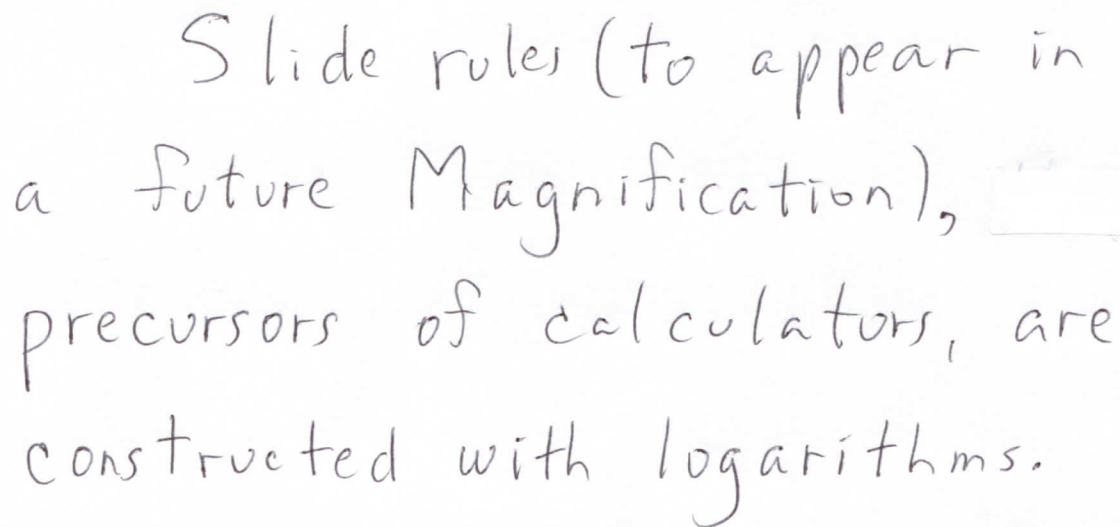 Slide rules (to appear in
a future Magnification),
precursors of calculators, are
constructed with logarithms.